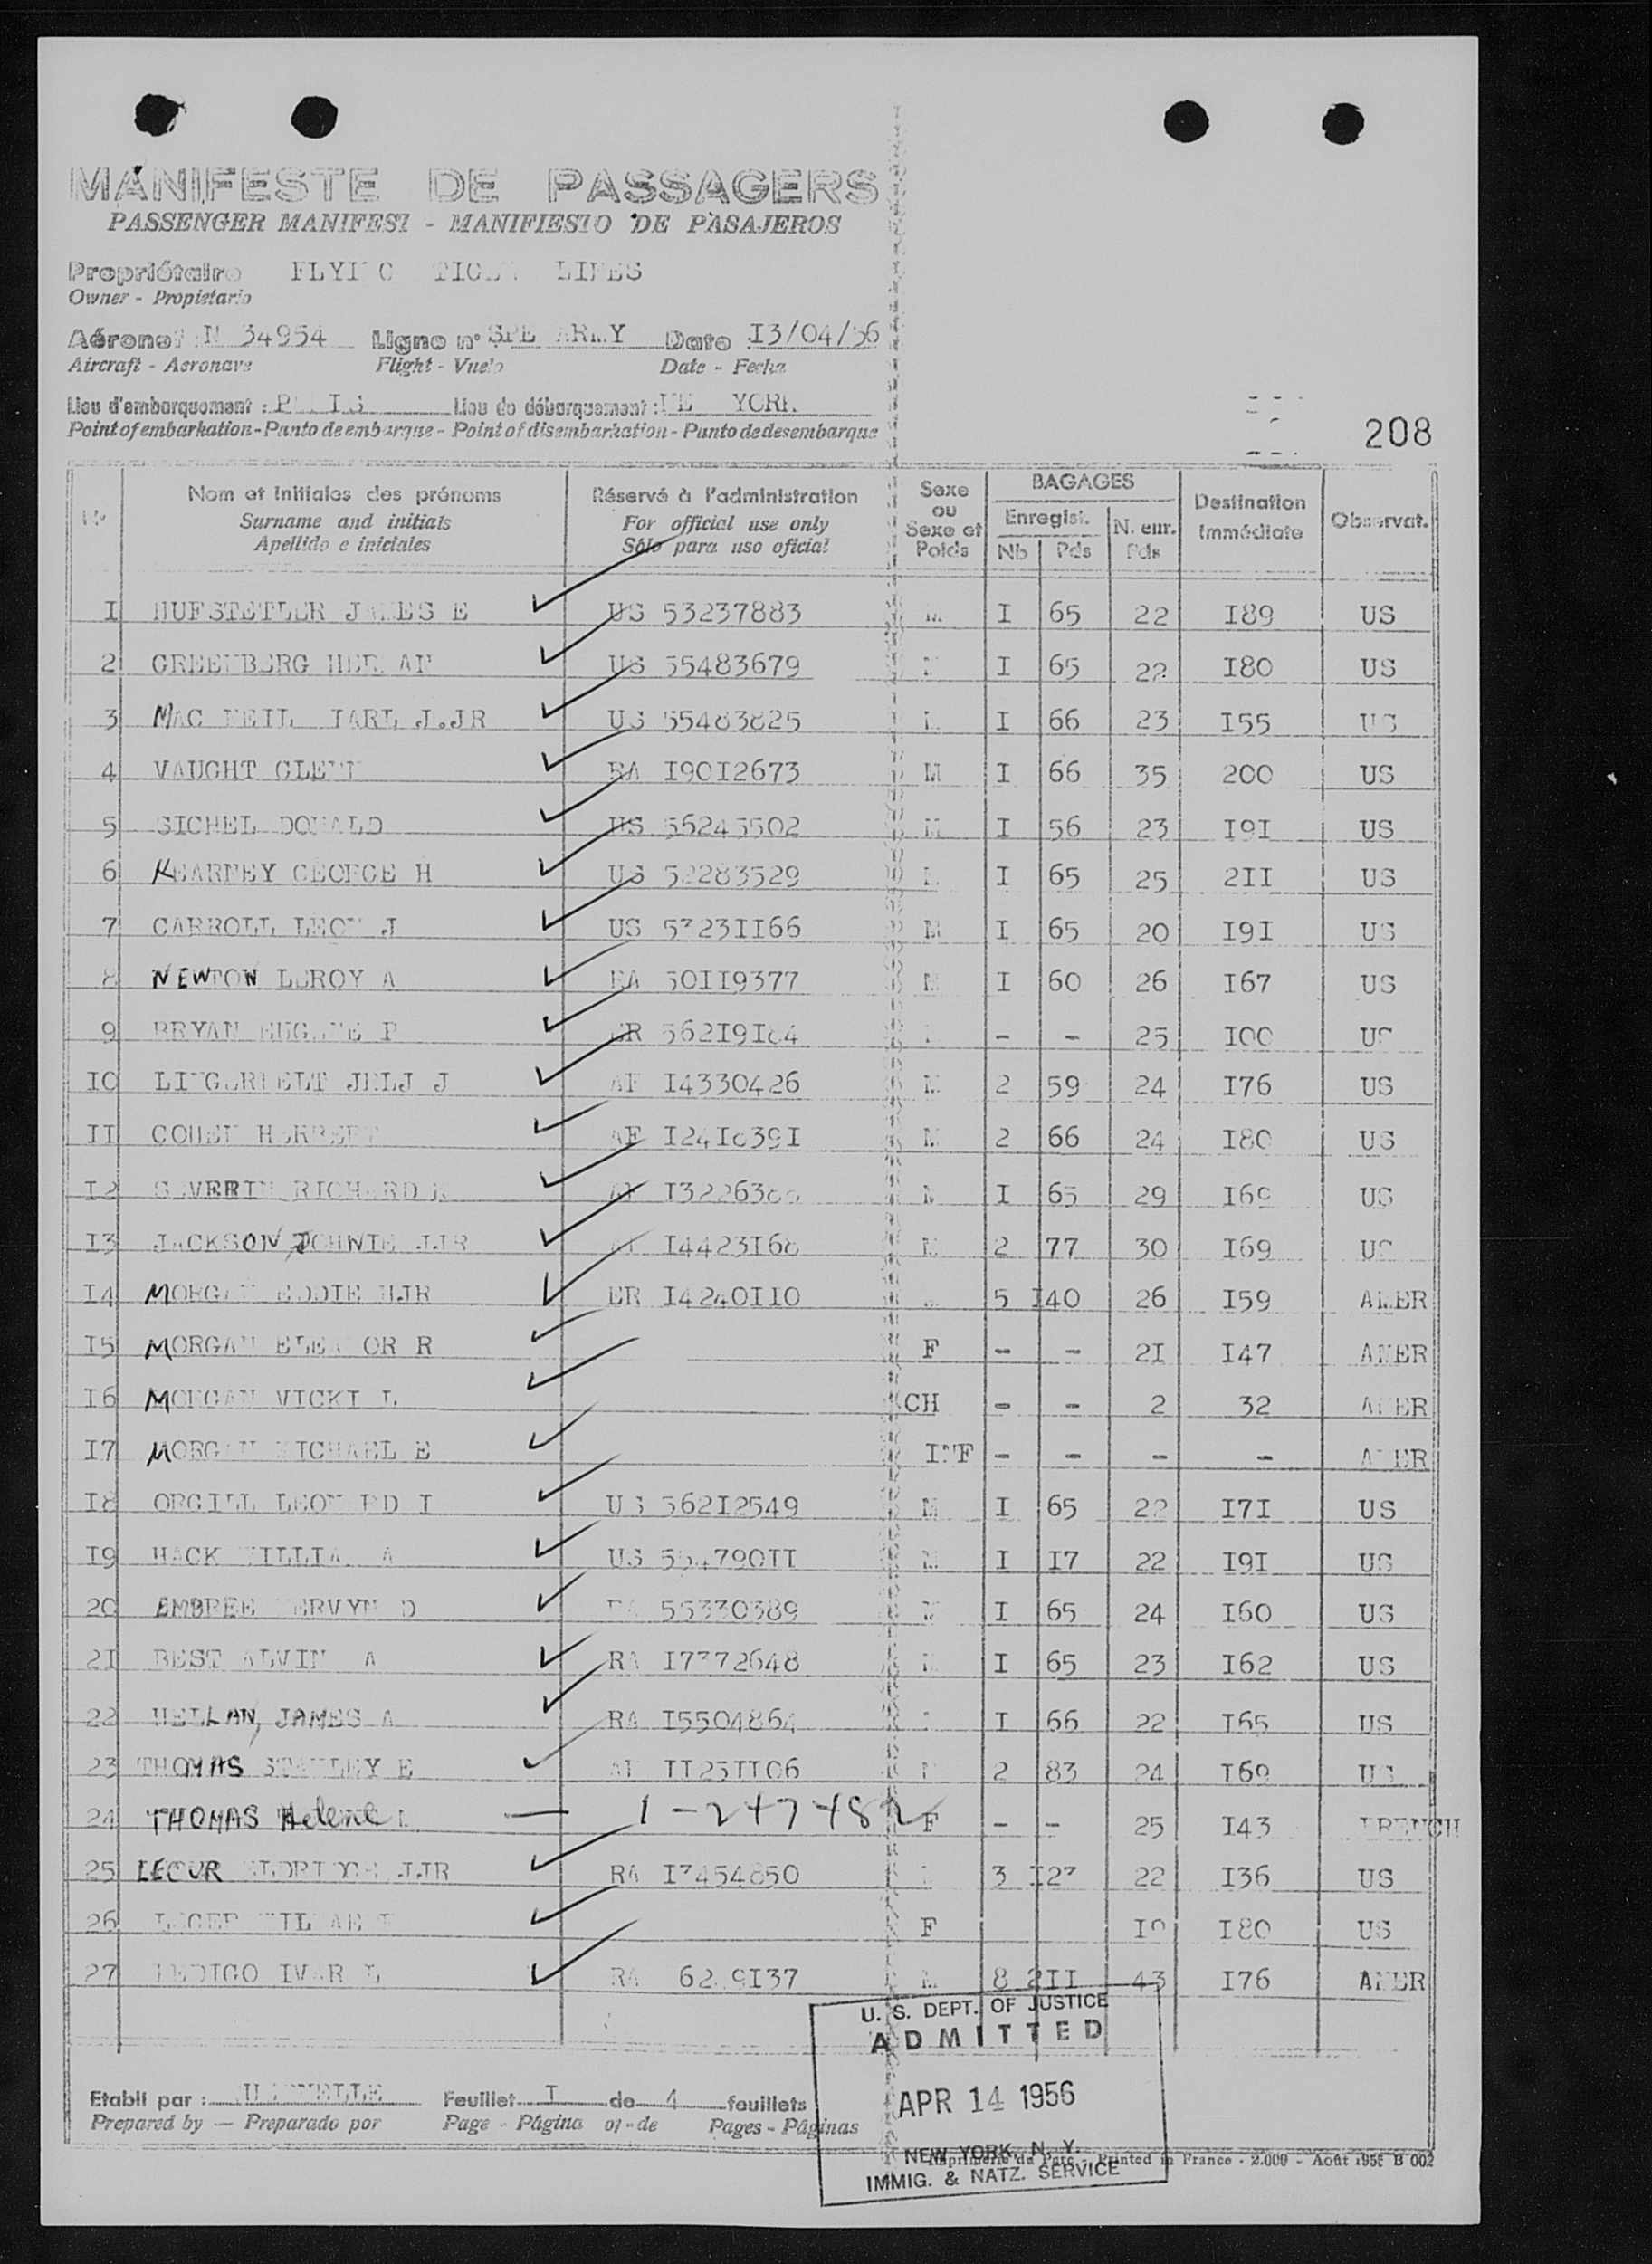 MANIFESTE DE PASSAGERS
PASSENGER MANIFEST - MANIFIESTO DE PASAJEROS
Propriétaire FLYI C TIG LINES
Owner - Propietario
Aéronef : N 34954 Ligne n° SPE ARMY Date I3/04/56
Aircraft - Aeronave Flight - Vuelo Date - Fecha
Lieu d'embarquement : P IS Lieu de débarquement : YORK
Point of embarkation - Punto de embarque - Point of disembarkation - Punto de desembarque
208
Nom et Initiales des prénoms Réservé à l'administration Sexe ou Sexe et Poids BAGAGES Destination Immédiate Observat.
Surname and initials For official use only Enregist. N. enr.
Apellido e iniciales Sólo para uso oficial Nb Pds Pds
I HUFSTETLER JAMES E US 53237883 M I 65 22 I89 US
2 GREENBERG HER AN US 55483679 I 65 22 I80 US
3 MAC NEIL J.JR US 55483825 I 66 23 I55 US
4 VAUGHT GLENN RA I90I2673 M I 66 35 200 US
5 SICHEL DONALD US 56245502 M I 56 23 I9I US
6 KEARNEY GEORGE H US 52283529 I 65 25 2II US
7 CARROLL LEON J US 5323II66 M I 65 20 I9I US
8 NEWTON LEROY A RA 50II9377 M I 60 26 I67 US
9 BRYAN EUGENE P ER 562I9I84 - - 25 I00 US
IO J AF I4330426 M 2 59 24 I76 US
II COHEN HERBERT AF I24I839I M 2 66 24 I80 US
I2 SEVERIN RICHARD AF M I 65 29 US
I3 JACKSON, JOHNIE J.JR AF I4423I68 M 2 77 30 I69 US
I4 MORGAN EDDIE HJR ER I4240II0 5 I40 26 I59 AMER
I5 MORGAN ELEANOR R F - - 2I I47 AMER
I6 MORGAN VICKI L CH - - 2 32 AMER
I7 MORGAN MICHAEL E INF - - - - AMER
I8 ORGILL LEONARD I US 562I2549 M I 65 22 I7I US
I9 HACK WILLIAM A US M I I7 22 I9I US
20 EMBREE MERVYN D RA 55330389 M I 65 24 I60 US
2I BEST ALVIN A RA I7372648 I 65 23 I62 US
22 HELLAN, JAMES A RA I5504864 I 66 22 I65 US
23 THOMAS STANLEY E AF II25II06 M 2 83 24 I69 US
24 THOMAS Helene — 1-247482 F - - 25 I43 FRENCH
25 J.JR RA I3454850 3 I23 22 I36 US
26 F I80 US
27 IVAR RA M 8 2II 43 I76 AMER
Etabli par : Feuillet I de 4 feuillets
Prepared by — Preparado por Page - Página of - de Pages - Páginas
U. S. DEPT. OF JUSTICE
ADMITTED
APR 14 1956
NEW YORK, N. Y.
IMMIG. & NATZ. SERVICE
Imprimerie du Parc - Printed in France - 2.000 - Août B 002